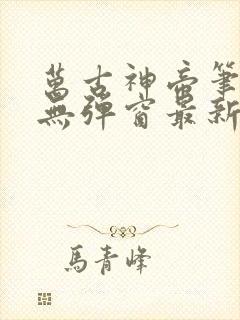 萬古神帝筆
無彈窗最新
馬青峰